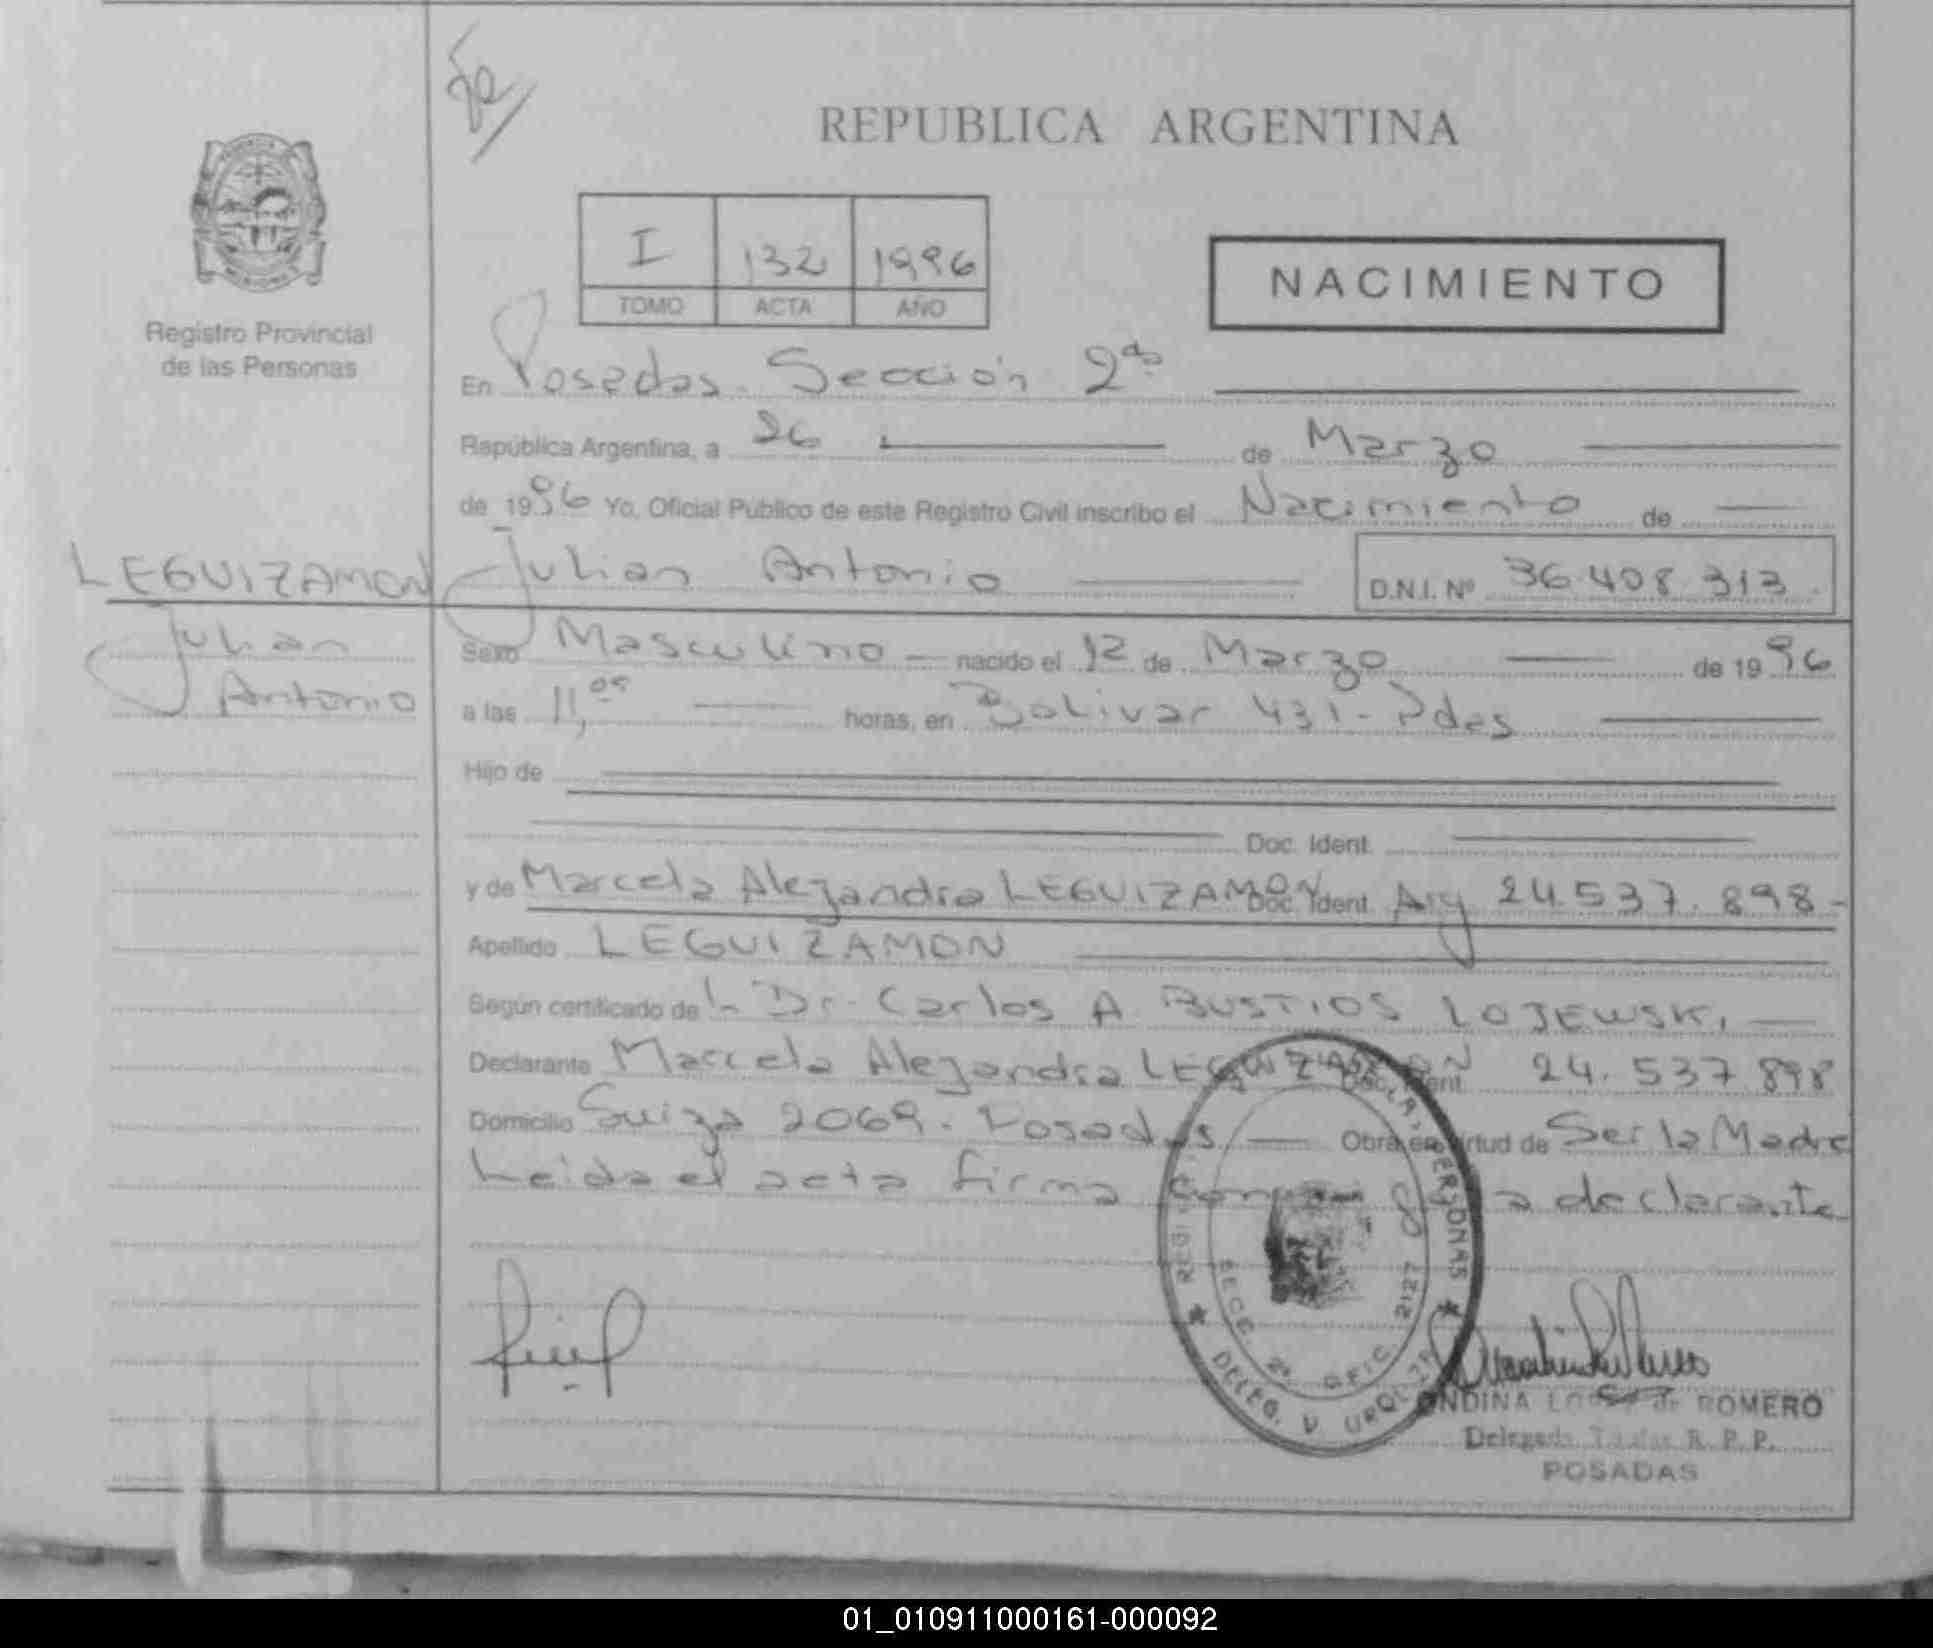 REPUBLICA ARGENTINA
I 132 1996
TOMO ACTA AÑO
NACIMIENTO
Registro Provincial
de las Personas
En Posadas. Sección 2da
República Argentina, a 26 de Marzo
de 1996 Yo, Oficial Público de este Registro Civil inscribo el Nacimiento de
Julian Antonio D.N.I. Nº 36.408.313
LEGUIZAMON
Julian
Antonio
Sexo Masculino nacido el 12 de Marzo de 1996
a las 11,00 horas, en Bolivar 431 - Pdas
Hijo de
Doc. Ident.
y de Marcela Alejandra LEGUIZAMON Doc. Ident. Arg 24.537.898-
Apellido LEGUIZAMON
Según certificado de l Dr. Carlos A. BUSTIOS LOJEWSKI
Declarante Marcela Alejandra LEGUIZAMON Doc. Ident. 24.537.898
Domicilio Suiza 2069. Posadas Obra en virtud de Ser la Madre
Leida el acta firma la declarante
REGI PERSONAS
DELEG. V. URQUIZA
SECC. 2ª OFIC. 2127
ONDINA de ROMERO
Delegada Titular R. P. P.
POSADAS
01_010911000161-000092